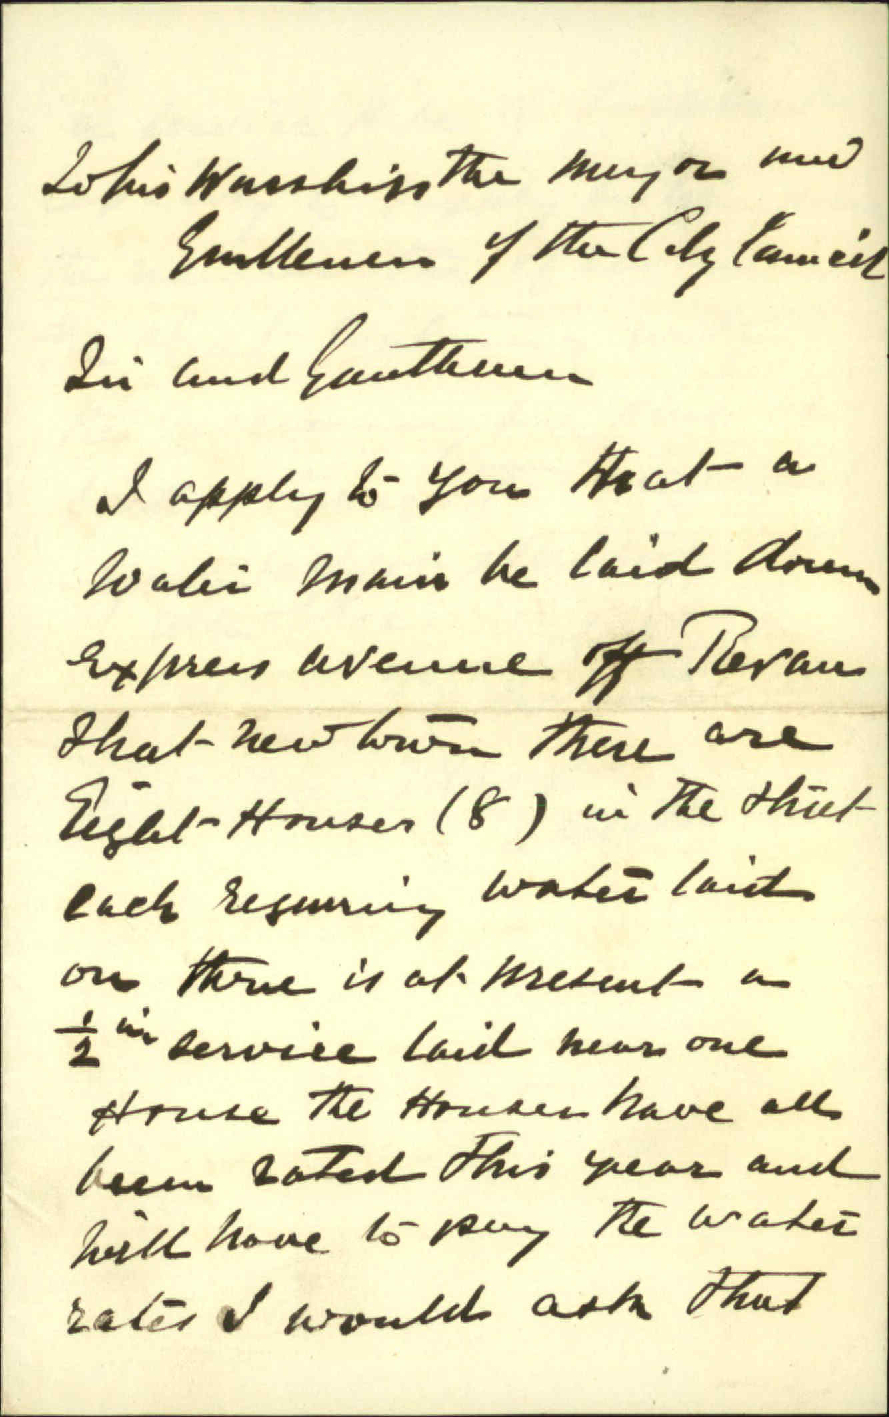 To his Worship the Mayor and
Gentlemen of the City Council
Sir and Gentlemen
I apply to you that a
Water Main be laid down
Express avenue off Revans
Street Newtown there are
Eight Houses (8) in the Street
each requiring water laid
on there is at present a
1/2 in service laid near one
House the Houses have all
been rated this year and
will have to pay the water
rates I would ask that